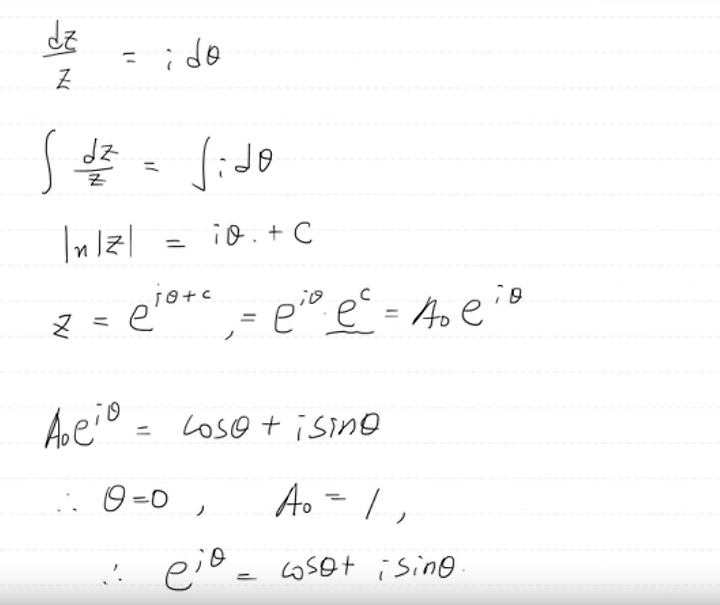 dz/z = i dθ
∫ dz/z = ∫ i dθ
ln|z| = iθ. + C
z = e^{iθ+c}, = e^{iθ} · e^c = A₀ e^{iθ}
A₀e^{iθ} = cosθ + i sinθ
∴ θ=0 , A₀ = 1,
∴ e^{iθ} = cosθ + i sinθ.